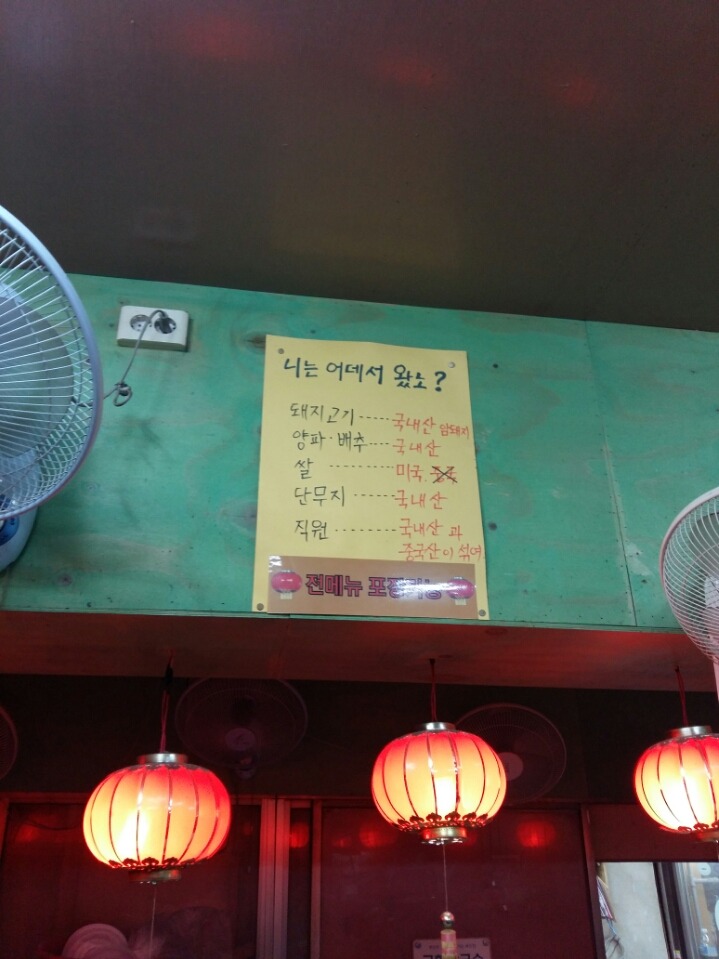 니는 어데서 왔노?
돼지고기 ----- 국내산 암돼지
양파·배추 --- 국내산
쌀 -------- 미국.
단무지 ------ 국내산
직원 -------- 국내산 과
중국산이 섞여
전메뉴 포장가능